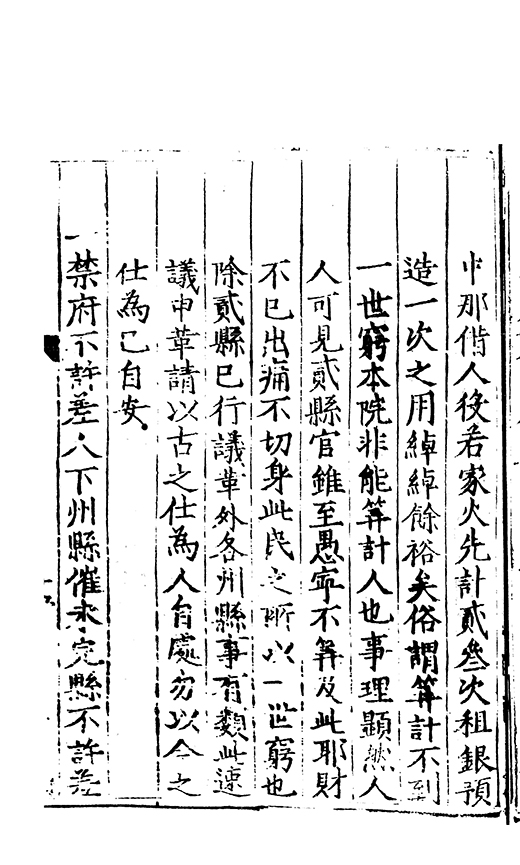 中那借人役若家火先計貳叁次租銀預
造一次之用綽綽餘裕矣俗謂筭計不到
一世窮本院非能筭計人也事理顯然人
人可見貳縣官雖至愚寧不筭及此耶財
不已出痛不切身此民之所以一世窮也
除貳縣已行議革外各州縣事有類此速
議申革請以古之仕為人自處勿以今之
仕為己自安
一禁府不許差人下州縣催未完縣不許差